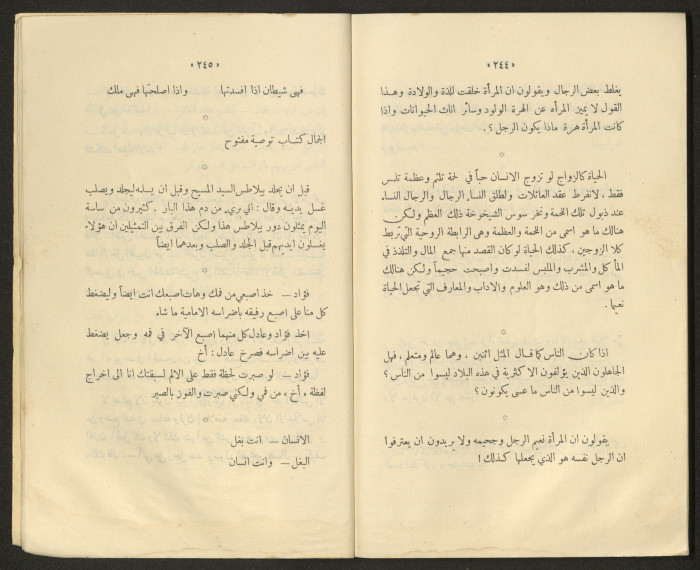 «٢٤٤»
يغلط بعض الرجال ويقولون ان المرأة خلقت للذة والولادة وهذا
القول لا يميز المرأة عن الهرة الولود وسائر اناث الحيوانات واذا
كانت المرأة هرة ماذا يكون الرجل ؟ .
○
الحياة كالزواج لو تزوج الانسان حباً في لحمة تلتم وعظمة تلبس
فقط ، لانفرط عقد العائلات ولطلق النساء الرجال والرجال النساء
عند ذبول تلك اللحمة ونخر سوس الشيخوخة ذلك العظم ولكن
هنالك ما هو اسمى من اللحمة والعظمة وهي الرابطة الروحية التي تربط
كلا الزوجين . كذلك الحياة لو كان القصد منها جمع المال والتلذذ في
المأكل والمشرب والملبس لفسدت واصبحت جحيماً ولكن هنالك
ما هو اسمى من ذلك وهو العلوم والاداب والمعارف التي تجعل الحياة
نعيما .
○
اذا كان الناس كما قال المثل اثنين ، وهما عالم ومتعلم ، فهل
الجاهلون الذين يؤلفون الاكثرية في هذه البلاد ليسوا من الناس ؟
والذين ليسوا من الناس ما عسى يكونون ؟
○
يقولون ان المرأة نعيم الرجل وجحيمه ولا يريدون ان يعترفوا
ان الرجل نفسه هو الذي يجعلها كذلك !
«٢٤٥»
فهي شيطان اذا افسدتها واذا اصلحتها فهي ملك
○
الجمال كتاب توصية مفتوح
○
قبل ان يجلد بيلاطس السيد المسيح وقبل ان يسلمه ليجلد ويصلب
غسل يديه وقال : اني بريء من دم هذا البار . كثيرون من ساسة
اليوم يمثلون دور بيلاطس هذا ولكن الفرق بين التمثيلين ان هؤلاء
يغسلون ايديهم قبل الجلد والصلب وبعدهما ايضاً
○
فؤاد — خذ اصبعي من فمك وهات اصبعك انت ايضاً وليضغط
كل منا على اصبع رفيقه باضراسه الامامية ما شاء
اخذ فؤاد وعادل كل منهما اصبع الآخر في فمه وجعل يضغط
عليه بين اضراسه فصرخ عادل : أخ
فؤاد — لو صبرت لحظة فقط على الالم لسبقتك انا الى اخراج
لفظة «أخ» من فمي ولكني صبرت والفوز بالصبر
○
الانسان — انت بغل
البغل — وانت انسان